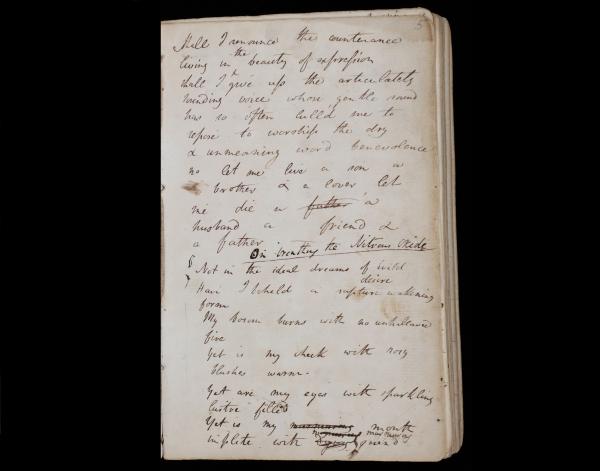 5
Shall I renounce the countenance
living in the beauty of expression
shall I give up the articulately
sounding voice whose gentle sound
has so often lulld me to
repose to worship the dry
& unmeaning word benevolence
no let me live a son a
brother & a lover let
me die a father a
husband a friend &
a father
On breathing the Nitrous Oxide
Not in the ideal dreams of wild
desire
Have I beheld a rapture wakening
form
My bosom burns with no unhallowed
fire
Yet is my cheek with rosy
blushes warm.
Yet are my eyes with sparkling
lustre filled
Yet is my murmuring mouth
implete with murmuring
sound